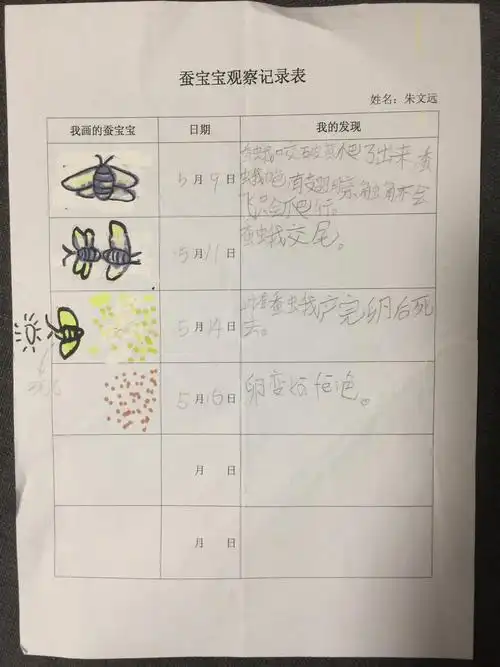 蚕宝宝观察记录表
姓名：朱文远
我画的蚕宝宝 日期 我的发现
5月9日 蚕蛾咬破茧爬了出来蚕
蛾有翅膀触角不会
飞只会爬行。
5月11日 蚕蛾交尾。
5月14日 蚕蛾产完卵后死
去。
5月16日 卵变
月 日
月 日